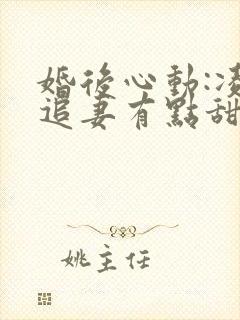 婚後心動:凌
追妻有點甜
姚主任